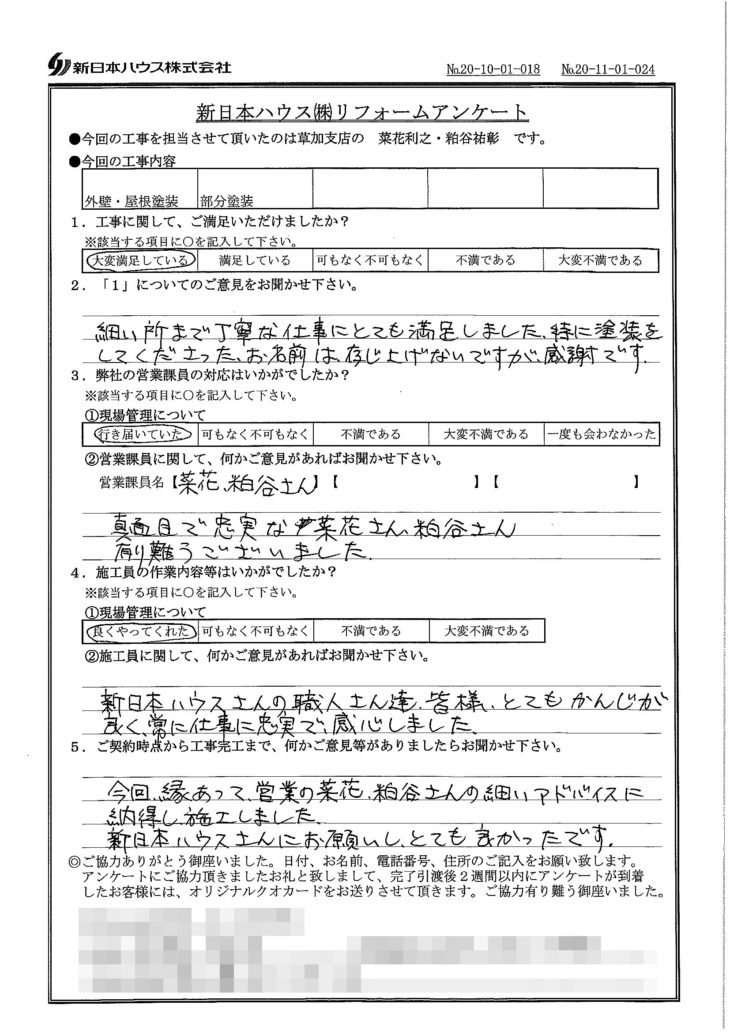 新日本ハウス株式会社
№20-10-01-018 №20-11-01-024
新日本ハウス㈱リフォームアンケート
●今回の工事を担当させて頂いたのは草加支店の 菜花利之・粕谷祐彰 です。
●今回の工事内容
外壁・屋根塗装 部分塗装
1．工事に関して、ご満足いただけましたか？
※該当する項目に○を記入して下さい。
大変満足している 満足している 可もなく不可もなく 不満である 大変不満である
2．「1」についてのご意見をお聞かせ下さい。
細い所まで丁寧な仕事にとても満足しました、特に塗装を
してくださった、お名前は、存じ上げないですが、感謝です.
3．弊社の営業課員の対応はいかがでしたか？
※該当する項目に○を記入して下さい。
①現場管理について
行き届いていた 可もなく不可もなく 不満である 大変不満である 一度も会わなかった
②営業課員に関して、何かご意見があればお聞かせ下さい。
営業課員名【菜花、粕谷さん】【 】【 】
真面目で忠実な菜花さん、粕谷さん
有難うございました.
4．施工員の作業内容等はいかがでしたか？
※該当する項目に○を記入して下さい。
①現場管理について
良くやってくれた 可もなく不可もなく 不満である 大変不満である
②施工員に関して、何かご意見があればお聞かせ下さい。
新日本ハウスさんの職人さん達、皆様、とてもかんじが
良く、常に仕事に忠実で、感心しました.
5．ご契約時点から工事完工まで、何かご意見等がありましたらお聞かせ下さい。
今回、縁あって、営業の菜花、粕谷さんの細いアドバイスに
納得し、施工しました.
新日本ハウスさんにお願いし、とても良かったです.
◎ご協力ありがとう御座いました。日付、お名前、電話番号、住所のご記入をお願い致します。
アンケートにご協力頂きましたお礼と致しまして、完了引渡後２週間以内にアンケートが到着
したお客様には、オリジナルクオカードをお送りさせて頂きます。ご協力有り難う御座いました。